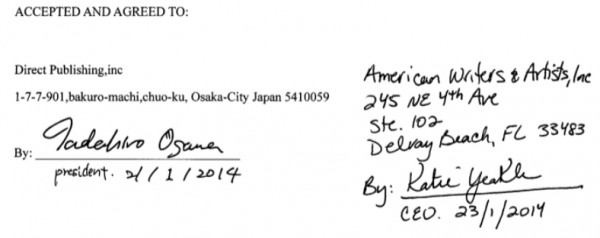 ACCEPTED AND AGREED TO:
Direct Publishing,inc
1-7-7-901,bakuro-machi,chuo-ku, Osaka-City Japan 5410059
By: Tadehiro
president. 21/1/2014
American Writers & Artists, Inc
245 NE 4th Ave
Ste. 102
Delray Beach, FL 33483
By: Katie Yeakle
CEO. 23/1/2014